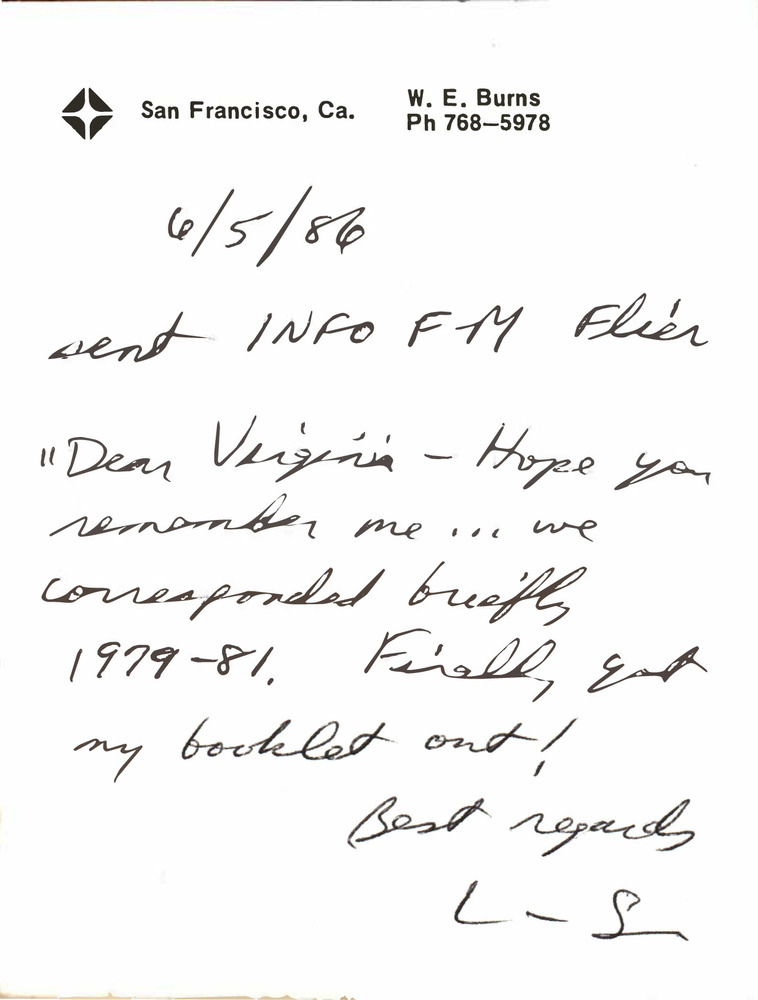 San Francisco, Ca.
W. E. Burns
Ph 768-5978
6/5/86
sent INFO F-M Flier
"Dear Virginia - Hope you
remember me ... we
corresponded briefly
1979-81. Finally got
my booklet out!
Best regards
L-S